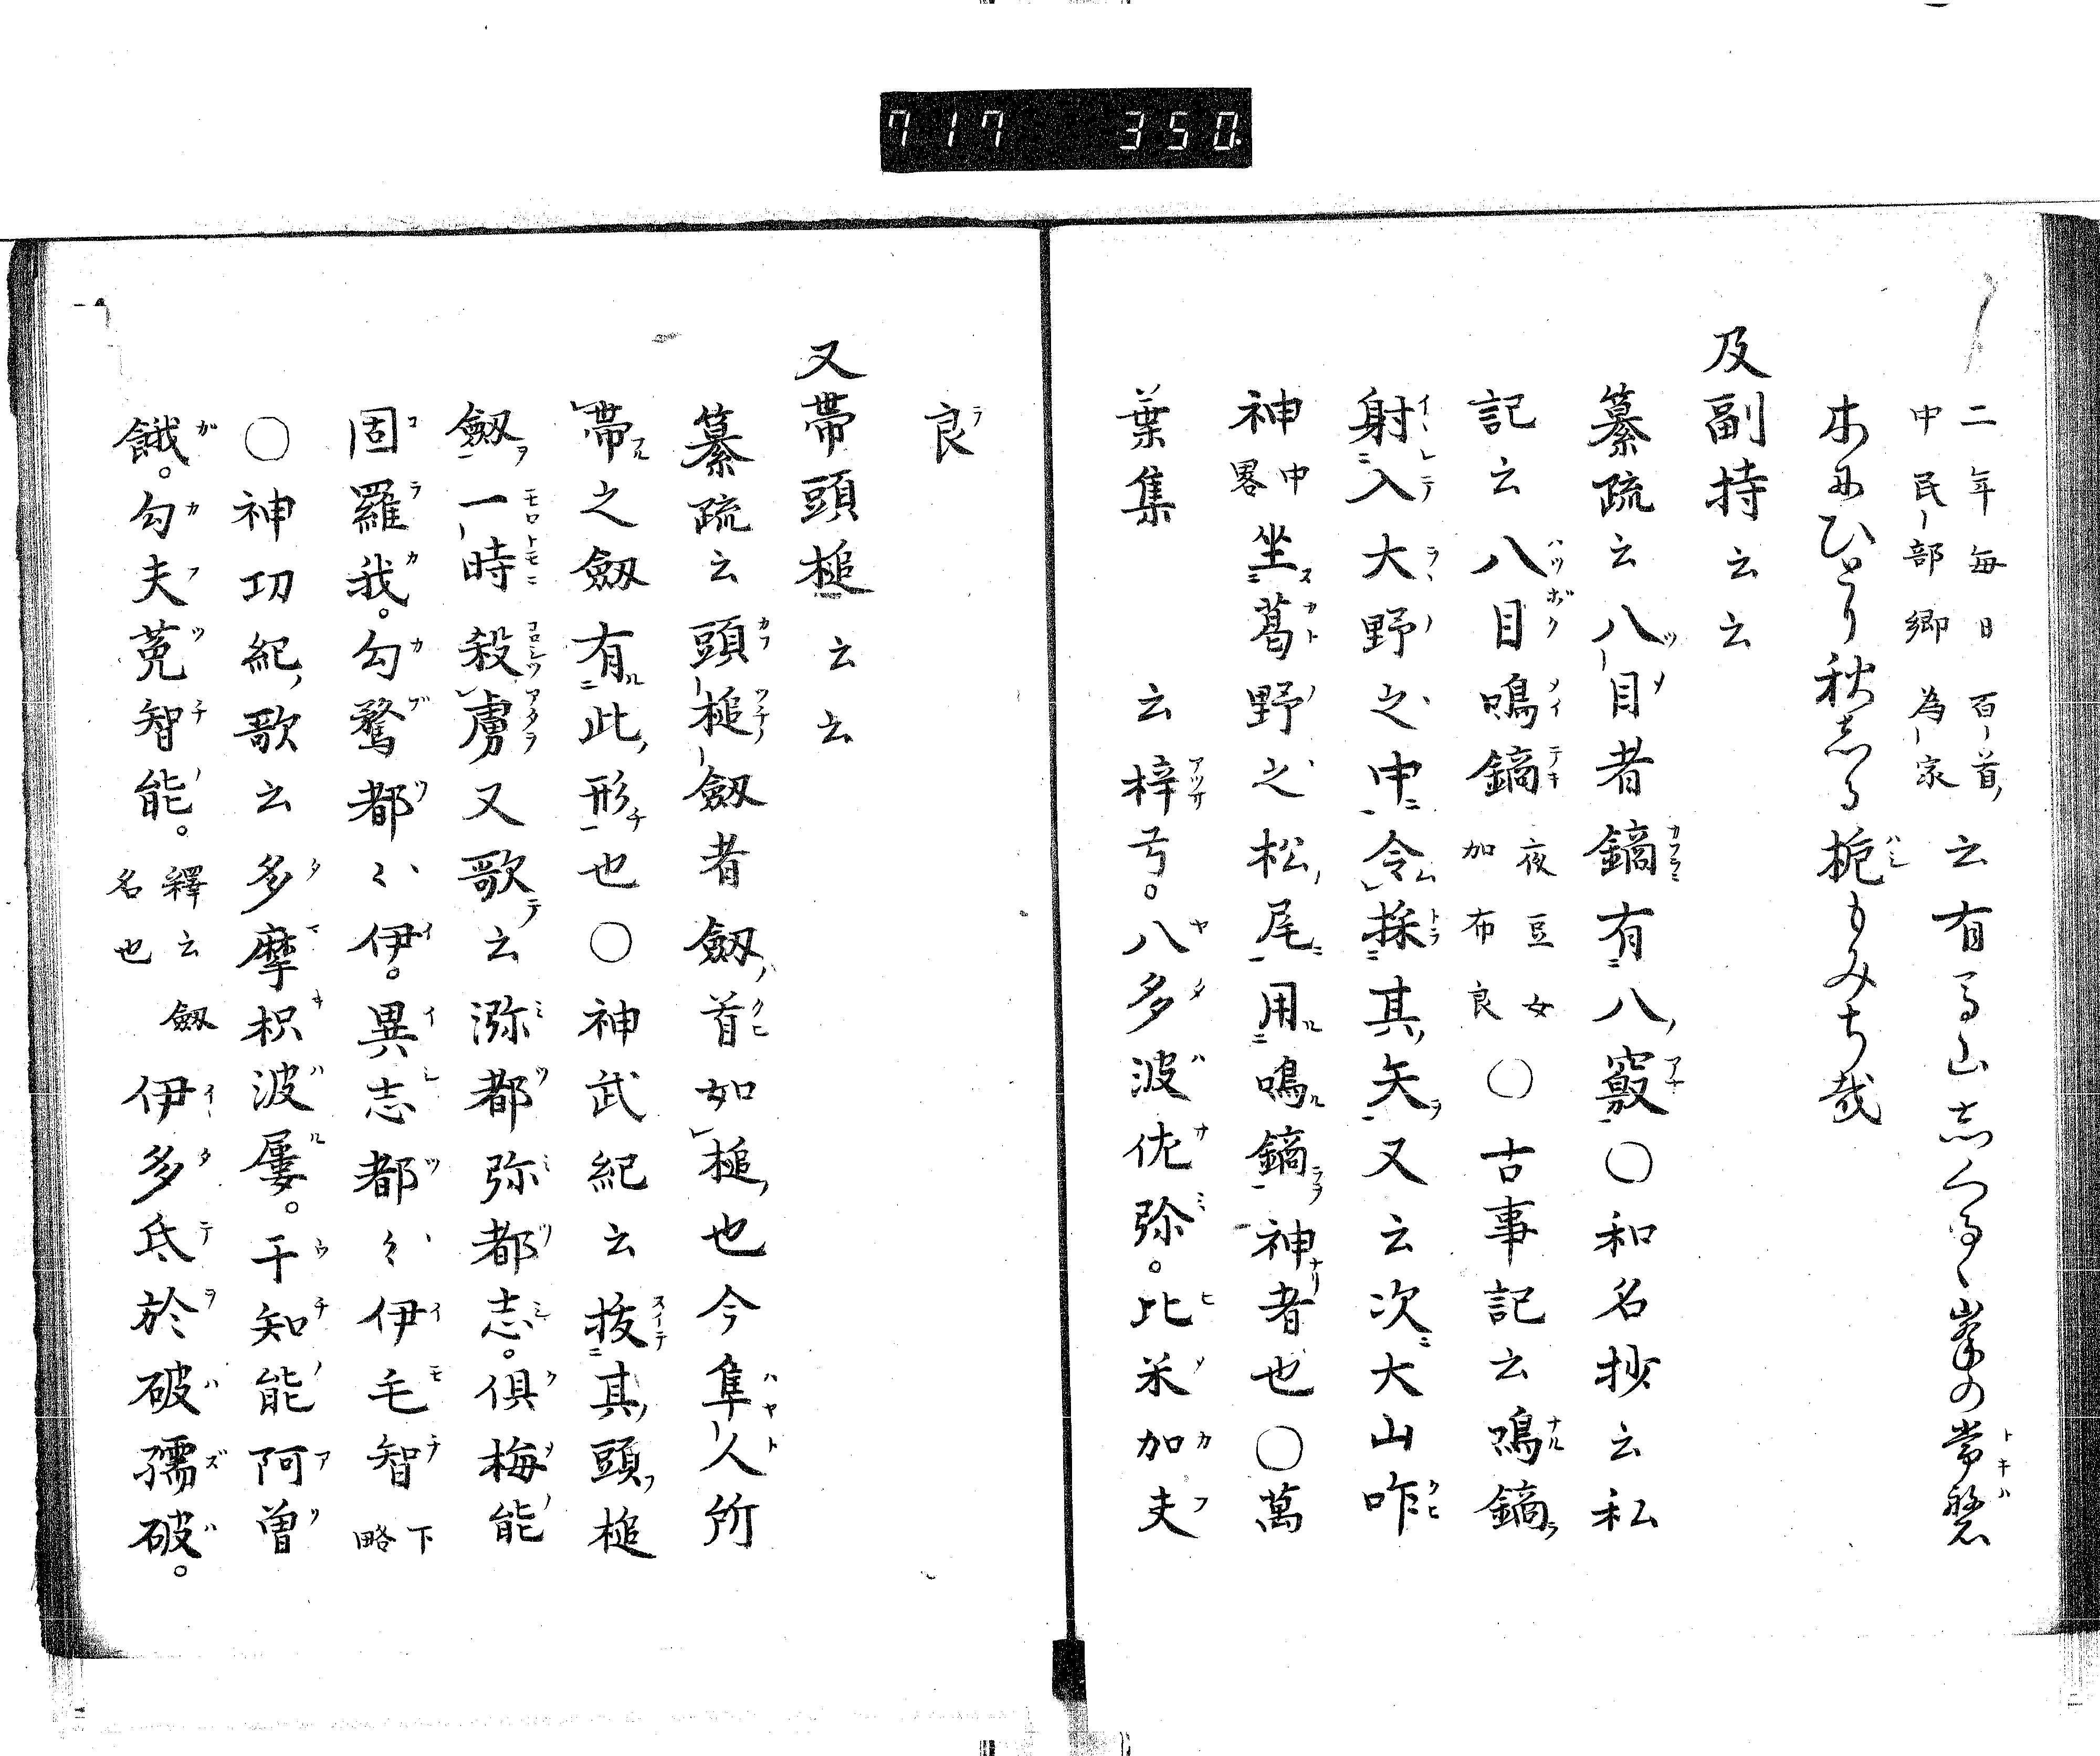 717 350
二年毎日百首中民部卿為家云有馬山志くるゝ峯の常磐
木にひとり秋志る梔もみち哉
及副持云云
纂疏云八目者鏑有八竅○和名抄云私
記云八目鳴鏑夜豆女加布良○古事記云鳴鏑
射入大野之中令採其矢又云次大山咋
神中畧坐葛野之松尾用鳴鏑神者也○萬
葉集 云梓弓。八多波佐弥。比米加夫
良
又帯頭槌云云
纂疏云頭槌劔者劔首如槌也今隼人所
帯之劔有此形也○神武紀云抜其頭槌
劔一時殺虜又歌云瀰都弥都志。倶梅能
固羅我。勾騖都々伊。異志都々伊毛智下略
○神功紀歌云多摩枳波屢。干知能阿曽
餓。勾夫菟智能。釋云劔名也伊多氐於破孺破。